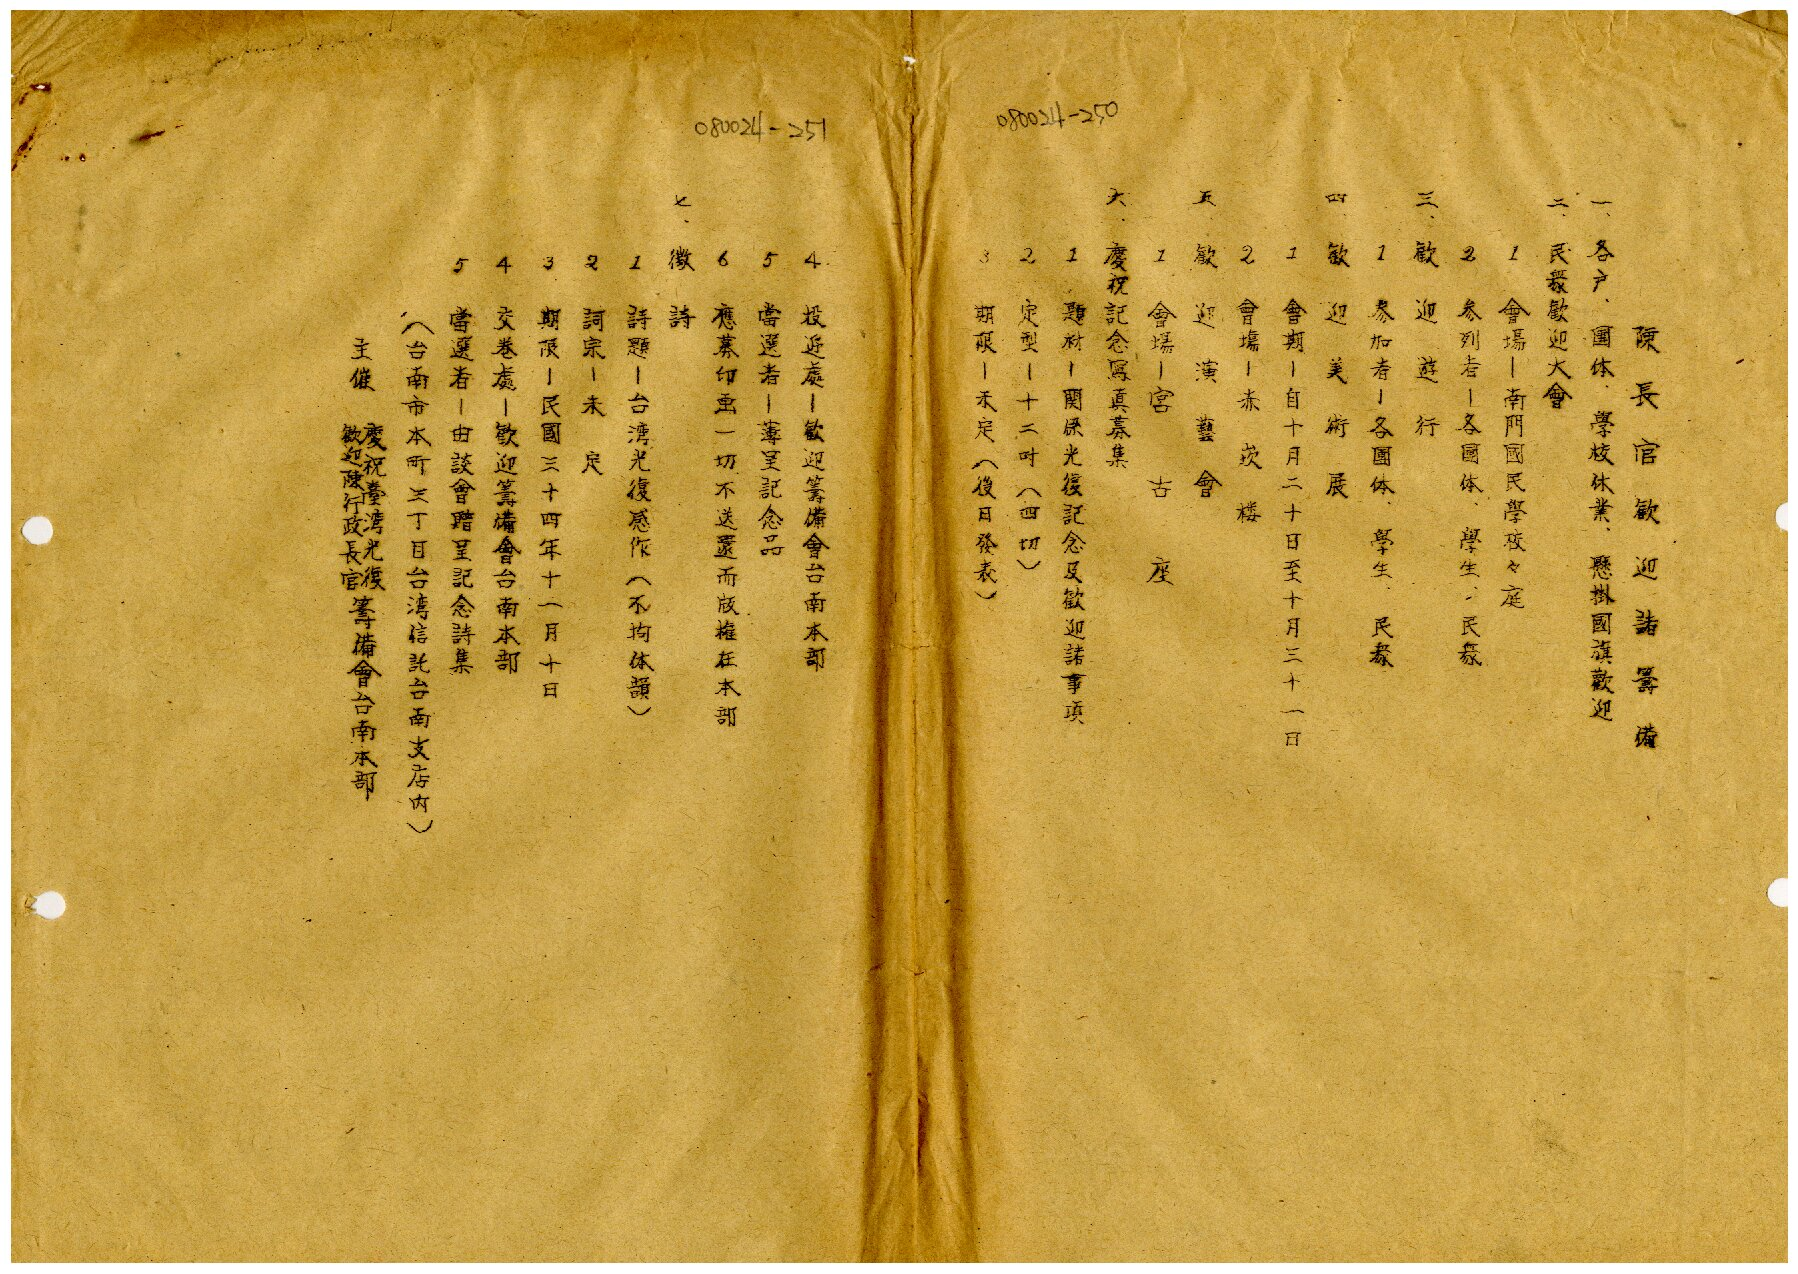 080024-250
陳長官歡迎諸籌備
一、各戶、團体、學校休業、懸掛國旗歡迎
二、民衆歡迎大會
1 會場－南門國民學校々庭
2 參列者－各團体、學生、民衆
三、歡迎遊行
1 參加者－各團体、學生、民衆
四、歡迎美術展
1 會期－自十月二十日至十月三十一日
2 會場－赤崁楼
五、歡迎演藝會
1 會場－宮古座
六、慶祝記念寫真募集
1 題材－関係光復記念及歡迎諸事項
2 定型－十二吋（四切）
3 期限－未定（後日發表）
080024-251
4 投迎處－歡迎籌備會台南本部
5 當選者－薄呈記念品
6 應募印画一切不送還而版権在本部
七、徴詩
1 詩題－台湾光復感作（不拘体韻）
2 詞宗－未定
3 期限－民國三十四年十一月十日
4 交巻處－歡迎籌備會台南本部
5 當選者－由談會贈呈記念詩集
（台南市本町三丁目台湾信託台南支店内）
主催 慶祝臺湾光復 歡迎陳行政長官 籌備會台南本部